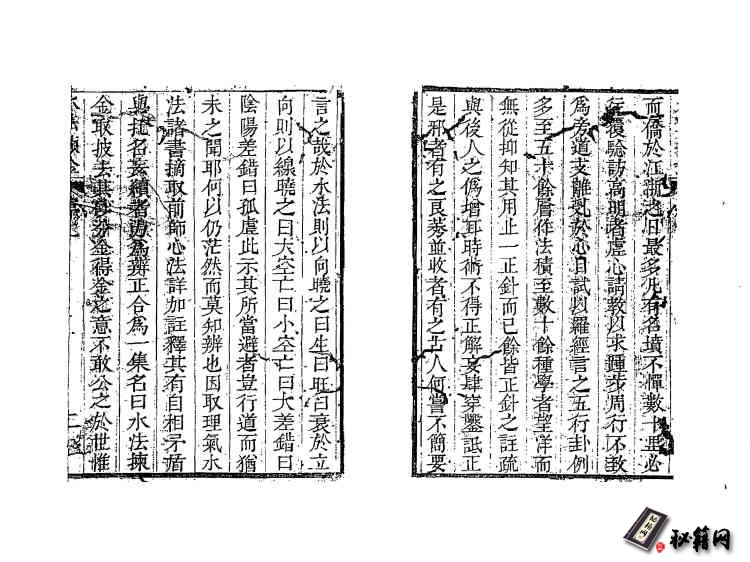 而僑於江浙之日最多凡有名墳不憚數十里必
往覆驗訪高明者虛心請教以求踵步周行不敢
爲旁道支離亂於心目試以羅經言之五行卦例
多至五十餘層作法積至數十餘種學者望洋而
無從抑知其用止一正針而已餘皆正針之註疏
與後人之僞增耳時術不得正解妄肆穿鑿詆正
是邪者有之良莠並收者有之古人何嘗不簡要
言之哉於水法則以向曉之曰生曰旺曰衰於立
向則以線曉之曰大空亡曰小空亡曰大差錯曰
陰陽差錯曰孤虛此示其所當避者豈行道而猶
未之聞耶何以仍茫然而莫知辨也因取理氣水
法諸書摘取前師心法詳加註釋其有自相矛盾
與捷名法續者邊爲辨正合爲一集名曰水法揀
金取披去其沙分金得金之意不敢公之於世惟
水法揀金
二
秘籍网